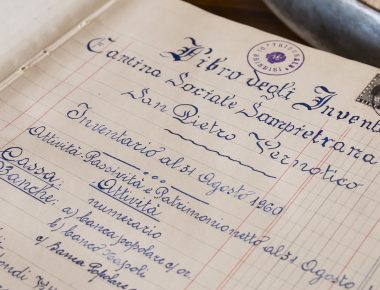 Libro degli Invent
Cantina Sociale Sampietrana
San Pietro Vernotico
Inventario al 31 Agosto 1960
Attività: Passività e Patrimonio netto al 31 Agosto 1
Attività
Cassa: numerario
Banche: a) banca popolare c/or
b) banco Napoli
c) Banca Popolare